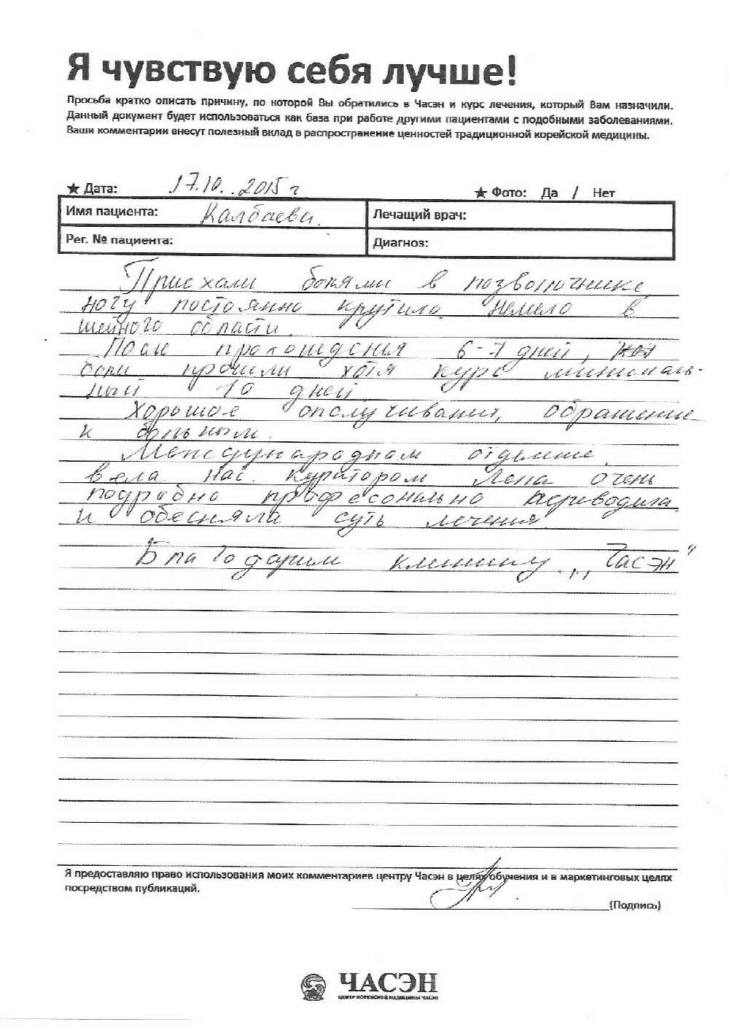 Я чувствую себя лучше!
Просьба кратко описать причину, по которой Вы обратились в Часэн и курс лечения, который Вам назначили.
Данный документ будет использоваться как база при работе другими пациентами с подобными заболеваниями.
Ваши комментарии внесут полезный вклад в распространение ценностей традиционной корейской медицины.
★ Дата: 17.10..2015 г ★ Фото: Да / Нет
Имя пациента: Калбаева. Лечащий врач:
Рег. № пациента: Диагноз:
Приехали болями в позвоночнике
ногу постоянно крутило немело в
шейного области.
После прохождения 6-7 дней,
боли прошли хотя курс минималь-
ный 10 дней
Хорошое опслучивания, обращение
к больным.
Международнам отделше.
вела нас куратором Лена очень
подробно професонально переводила
и обесняла суть лечения
Благодарим клинику ,,Часэн"
Я предоставляю право использования моих комментариев центру Часэн в целях обучения и в маркетинговых целях
посредством публикаций.
(Подпись)
ЧАСЭН
ЦЕНТР КОРЕЙСКОЙ МЕДИЦИНЫ ЧАСЭН